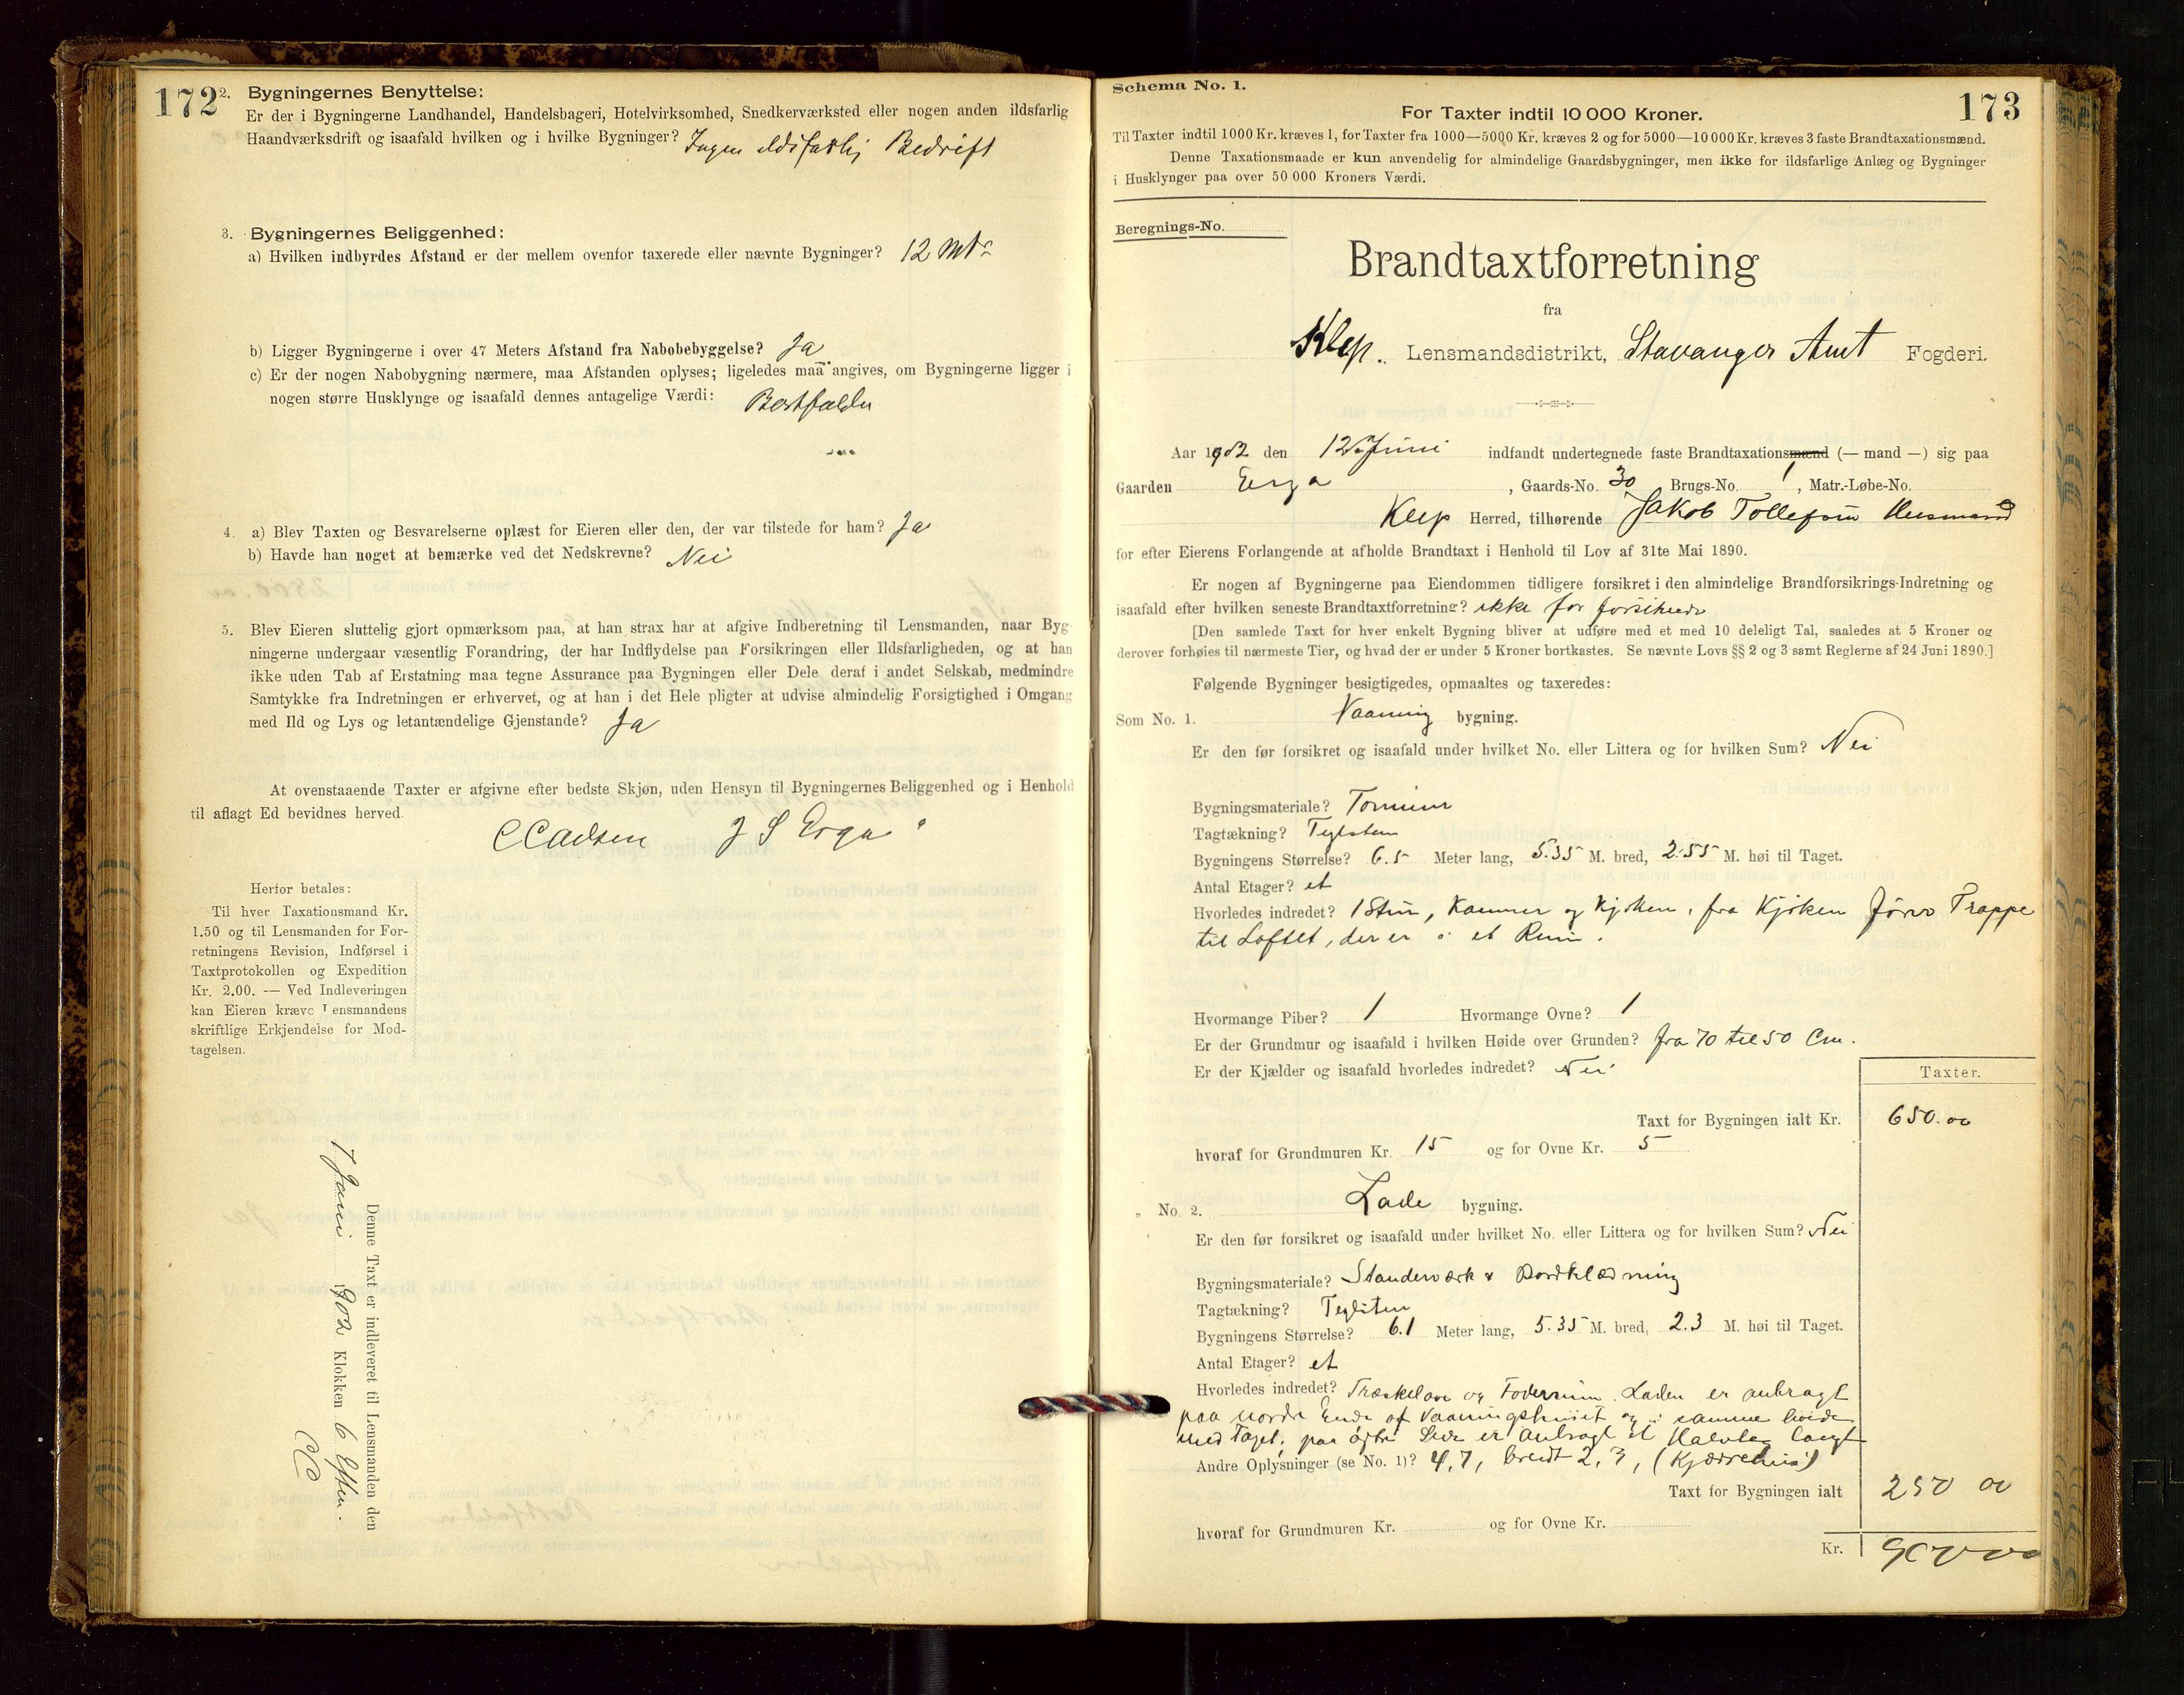 172
2. Bygningernes Benyttelse:
Er der i Bygningerne Landhandel, Handelsbageri, Hotelvirksomhed, Snedkerværksted eller nogen anden ildsfarlig
Haandværksdrift og isaafald hvilken og i hvilke Bygninger? Ingen ildsfarlig Bedrift
3. Bygningernes Beliggenhed:
a) Hvilken indbyrdes Afstand er der mellem ovenfor taxerede eller nævnte Bygninger? 12 Mtr
b) Ligger Bygningerne i over 47 Meters Afstand fra Nabobebyggelse? Ja
c) Er der nogen Nabobygning nærmere, maa Afstanden oplyses; ligeledes maa angives, om Bygningerne ligger i
nogen større Husklynge og isaafald dennes antagelige Værdi: Bortfalder
4. a) Blev Taxten og Besvarelserne oplæst for Eieren eller den, der var tilstede for ham? Ja
b) Havde han noget at bemærke ved det Nedskrevne? Nei
5. Blev Eieren sluttelig gjort opmærksom paa, at han strax har at afgive Indberetning til Lensmanden, naar Byg-
ningerne undergaar væsentlig Forandring, der har Indflydelse paa Forsikringen eller Ildsfarligheden, og at han
ikke uden Tab af Erstatning maa tegne Assurance paa Bygningen eller Dele deraf i andet Selskab, medmindre
Samtykke fra Indretningen er erhvervet, og at han i det Hele pligter at udvise almindelig Forsigtighed i Omgang
med Ild og Lys og letantændelige Gjenstande? Ja
At ovenstaaende Taxter er afgivne efter bedste Skjøn, uden Hensyn til Bygningernes Beliggenhed og i Henhold
til aflagt Ed bevidnes herved.
J S Erga
Herfor betales:
Til hver Taxationsmand Kr.
1.50 og til Lensmanden for For-
retningens Revision, Indførsel i
Taxtprotokollen og Expedition
Kr. 2.00. — Ved Indleveringen
kan Eieren kræve Lensmandens
skriftlige Erkjendelse for Mod-
tagelsen.
Denne Taxt er indleveret til Lensmanden den
7 Juni 1902 Klokken 6 Efterm.
173
Schema No. 1.
For Taxter indtil 10 000 Kroner.
Til Taxter indtil 1000 Kr. kræves 1, for Taxter fra 1000—5000 Kr. kræves 2 og for 5000—10 000 Kr. kræves 3 faste Brandtaxationsmænd.
Denne Taxationsmaade er kun anvendelig for almindelige Gaardsbygninger, men ikke for ildsfarlige Anlæg og Bygninger
i Husklynger paa over 50 000 Kroners Værdi.
Beregnings-No.
Brandtaxtforretning
fra
Klep. Lensmandsdistrikt, Stavanger Amt Fogderi.
Aar 1902 den 12 Juni indfandt undertegnede faste Brandtaxationsmænd (— mand —) sig paa
Gaarden Erga , Gaards-No. 30 Brugs-No. 1, Matr.-Løbe-No.
Klep Herred, tilhørende Jakob Tollefsen Husmand
for efter Eierens Forlangende at afholde Brandtaxt i Henhold til Lov af 31te Mai 1890.
Er nogen af Bygningerne paa Eiendommen tidligere forsikret i den almindelige Brandforsikrings-Indretning og
isaafald efter hvilken seneste Brandtaxtforretning? ikke før forsikrede
[Den samlede Taxt for hver enkelt Bygning bliver at udføre med et med 10 deleligt Tal, saaledes at 5 Kroner og
derover forhøies til nærmeste Tier, og hvad der er under 5 Kroner bortkastes. Se nævnte Lovs §§ 2 og 3 samt Reglerne af 24 Juni 1890.]
Følgende Bygninger besigtigedes, opmaaltes og taxeredes:
Som No. 1. Vaaning bygning.
Er den før forsikret og isaafald under hvilket No. eller Littera og for hvilken Sum? Nei
Bygningsmateriale? Tømmer
Tagtækning? Teglsten
Bygningens Størrelse? 6.5 Meter lang, 5.35 M. bred, 2.55 M. høi til Taget.
Antal Etager? et
Hvorledes indredet? 1 Stue, Kammer og Kjøken, fra Kjøken fører Trappe
til Loftet, der er i et Rum.
Hvormange Piber? 1 Hvormange Ovne? 1
Er der Grundmur og isaafald i hvilken Høide over Grunden? fra 70 til 50 Cm.
Er der Kjælder og isaafald hvorledes indredet? Nei
Taxter.
Taxt for Bygningen ialt Kr. 650.00
hvoraf for Grundmuren Kr. 15 og for Ovne Kr. 5
„ No. 2. Lade bygning.
Er den før forsikret og isaafald under hvilket No. eller Littera og for hvilken Sum? Nei
Bygningsmateriale? Standerværk & Bordklædning
Tagtækning? Teglsten
Bygningens Størrelse? 6.1 Meter lang, 5.35 M. bred, 2.3 M. høi til Taget.
Antal Etager? et
Hvorledes indredet? Træskelove og Foderrum. Laden er anbragt
paa nordre Ende af Vaaningshuset og i samme høide
med Taget, paa østre Side er anbragt et Halvtag langt
Andre Oplysninger (se No. 1)? 4,7, bredt 2,3, (Kjærrehus)
Taxt for Bygningen ialt 250 00
hvoraf for Grundmuren Kr. og for Ovne Kr.
Kr. 900 00